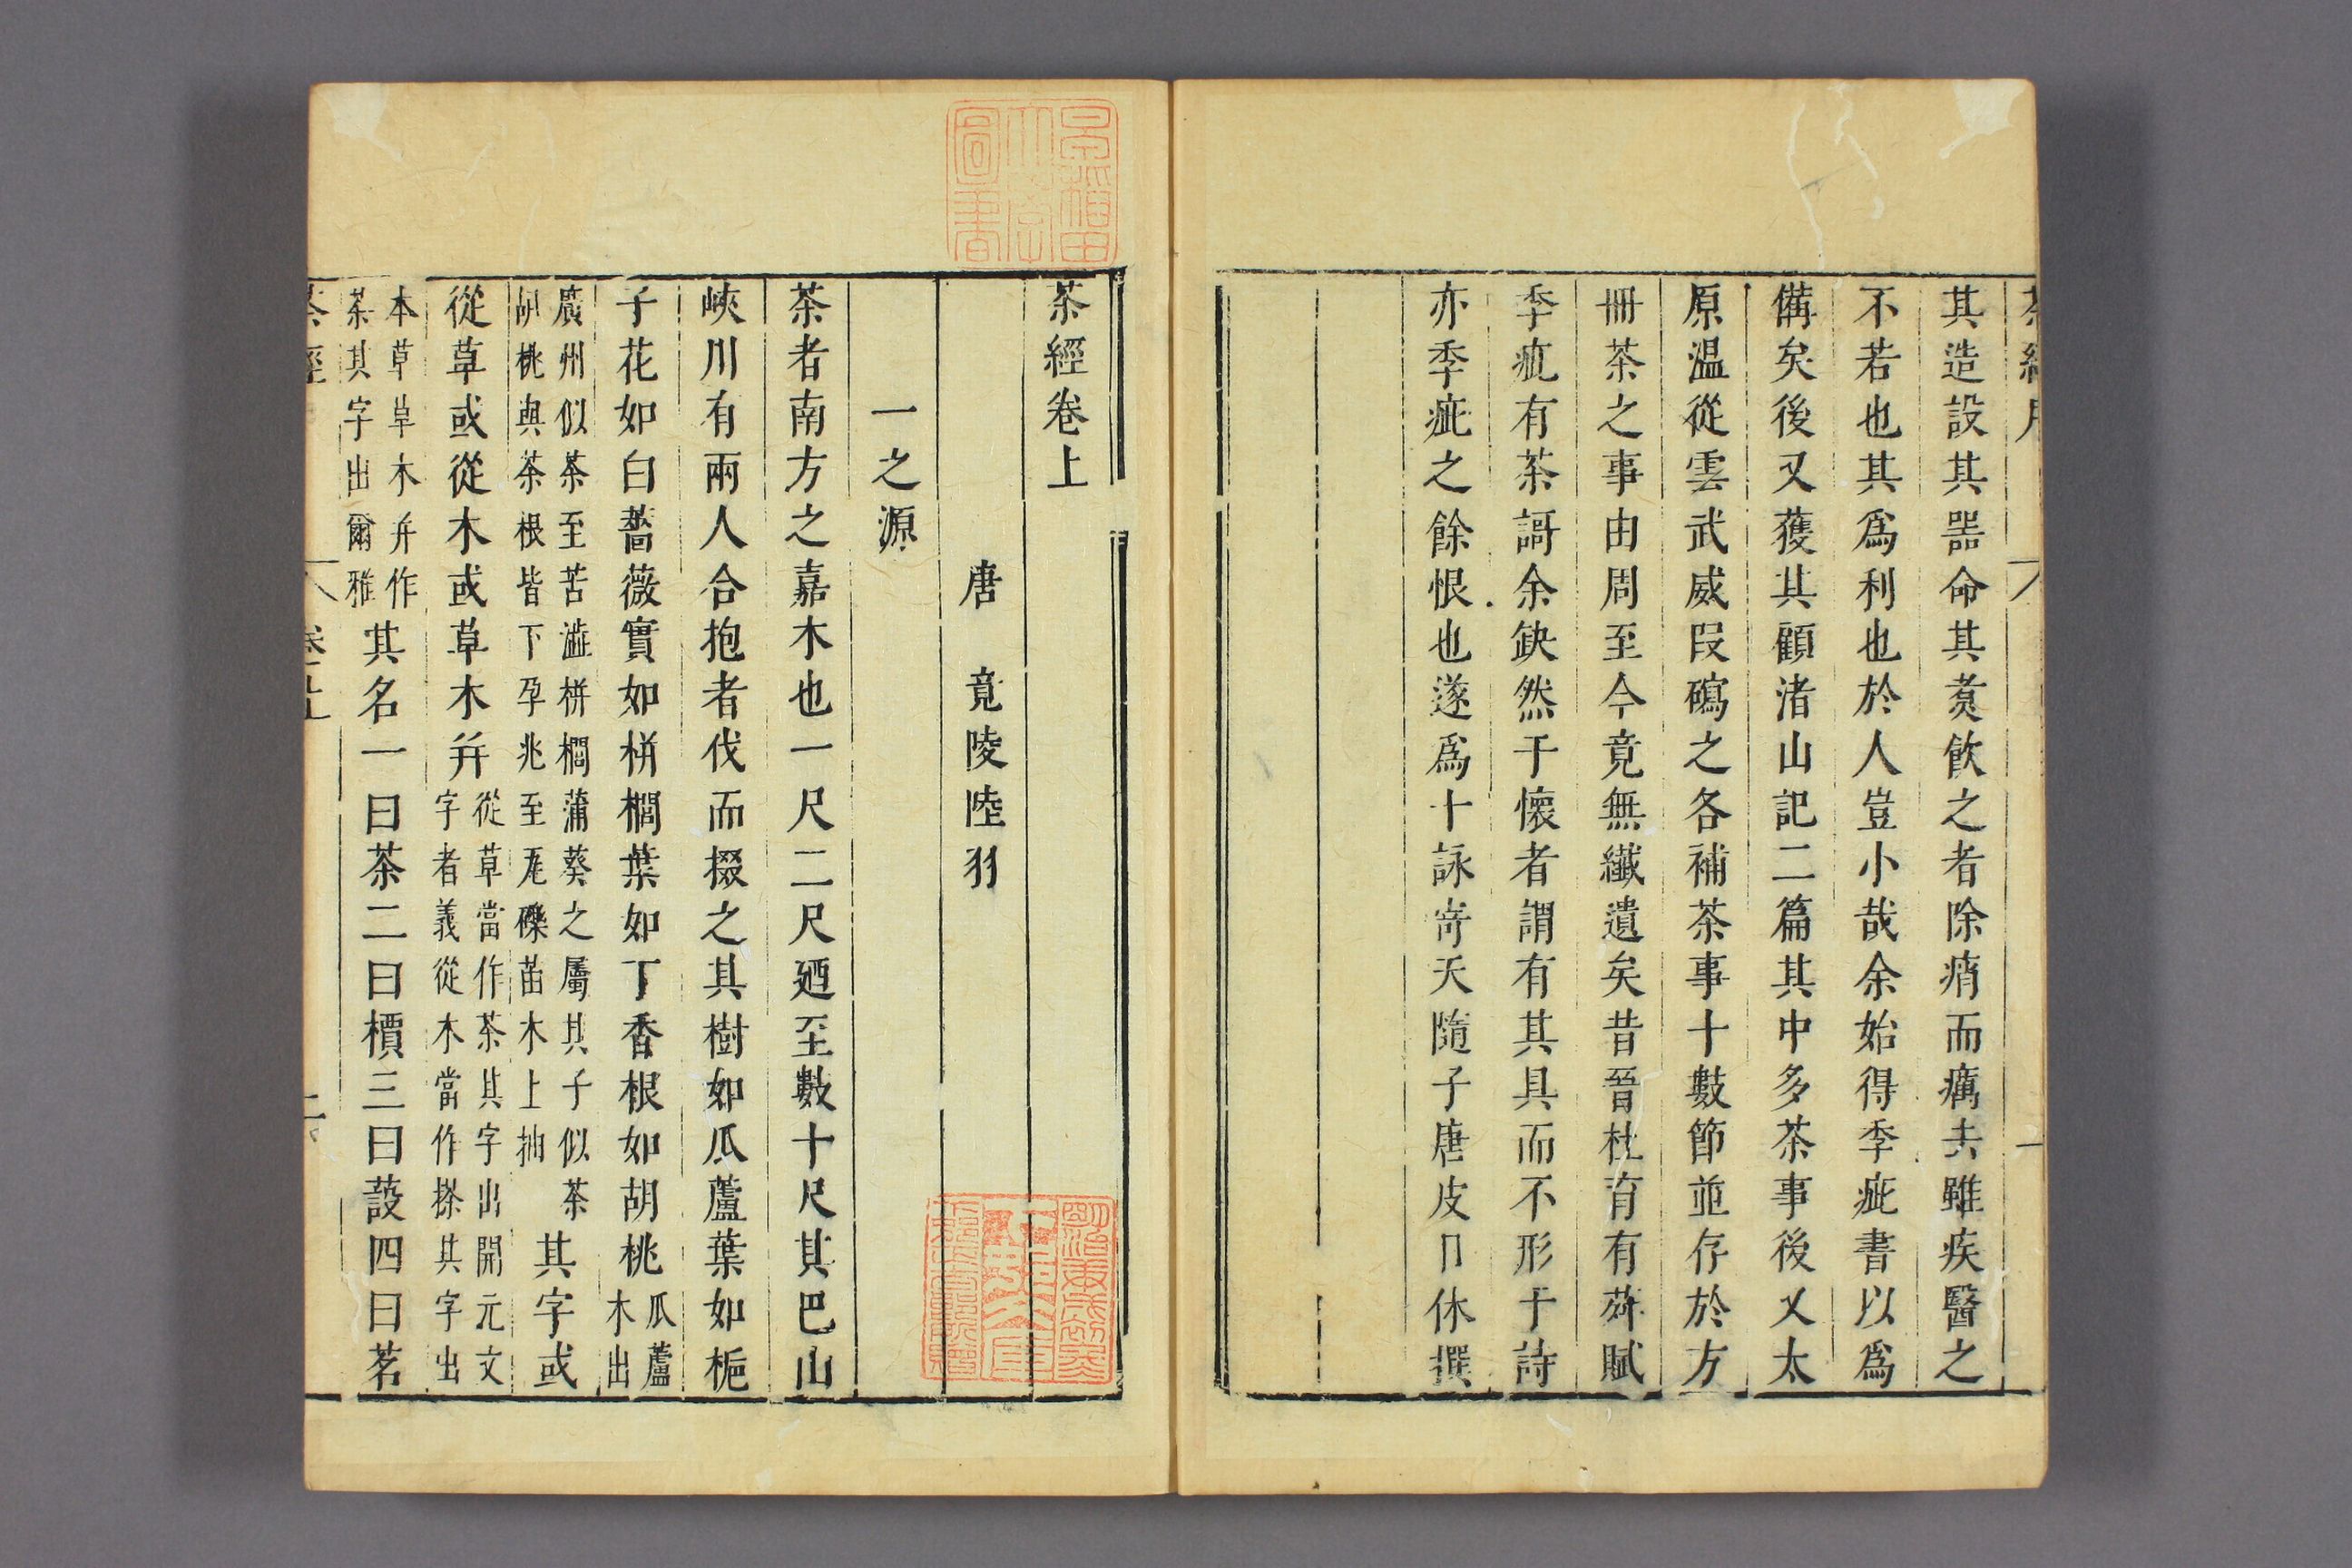 其造設其器命其煑飲之者除痟而癘去雖疾醫之
不若也其爲利也於人豈小哉余始得季疵書以爲
備矣後又獲其顧渚山記二篇其中多茶事後又太
原温從雲武威段䃺之各補茶事十數節並存於方
冊茶之事由周至今竟無纖遺矣昔晉杜育有荈賦
季疵有茶謌余缺然于懷者謂有其具而不形于詩
亦季疵之餘恨也遂爲十詠寄天隨子唐皮日休撰
茶經卷上
唐 竟陵陸羽
一之源
茶者南方之嘉木也一尺二尺廼至數十尺其巴山
峽川有兩人合抱者伐而掇之其樹如瓜蘆葉如梔
子花如白薔薇實如栟櫚葉如丁香根如胡桃瓜蘆木出
廣州似茶至苦澁栟櫚蒲葵之屬其子似茶胡桃與茶根皆下孕兆至瓦礫苗木上抽其字或
從草或從木或草木并從草當作茶其字出開元文字者義從木當作㮈其字出
本草草木并作荼其字出爾雅其名一曰茶二曰檟三曰蔎四曰茗